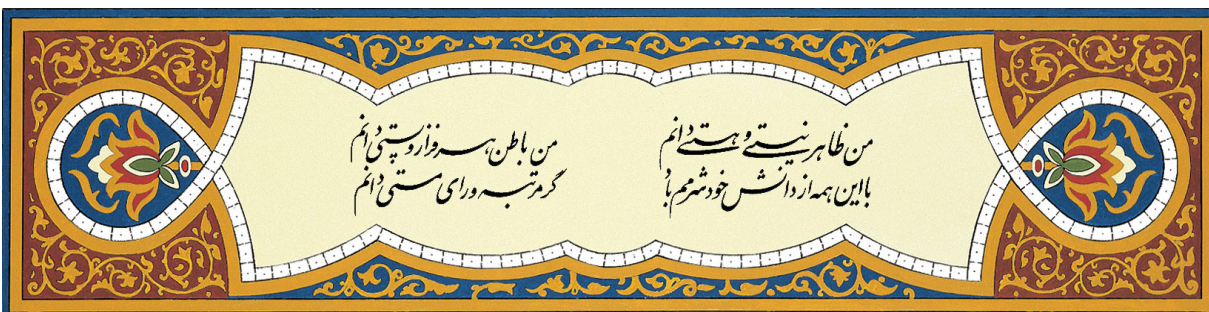 من ظاهر نیستی و هستی دانم من باطن هر فراز و پستی دانم
با این همه از دانش خود شرمم باد گر مرتبه ورای مستی دانم